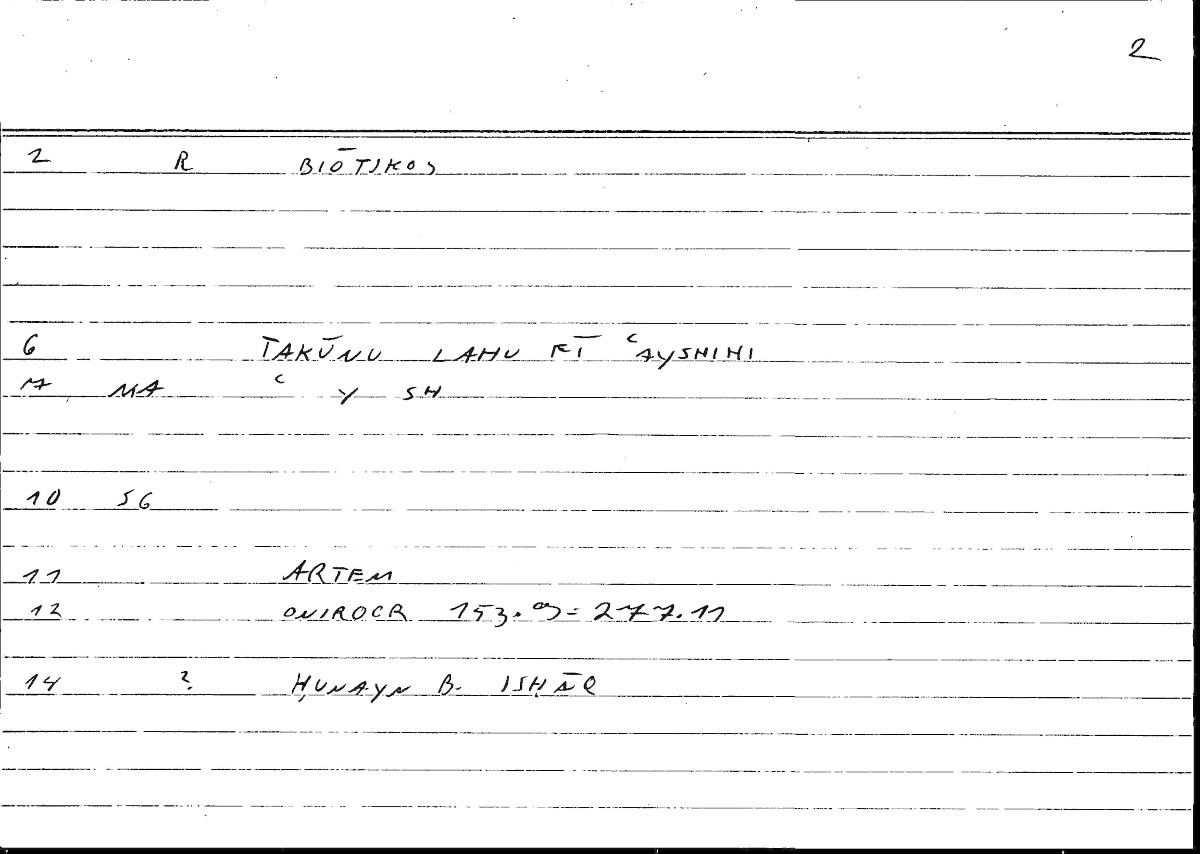 2
2 R BIŌTIKOS
6 TAKŪNU LAHU FĪ ʿAYSHIHI
7 MA ʿ Y SH
10 SG
11 ARTEM
12 ONIROCR 153.9 = 277.11
14 ? ḤUNAYN B. ISḤĀQ